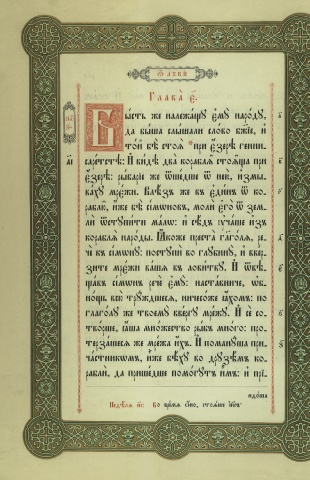 Ѿ ЛꙋКИ
Глава̀ є҃.
Бы́сть же належа́щꙋ є҆мꙋ̀ наро́дꙋ,
да бы́ша слы́шали сло́во бж҃їе, и҆
то́й бѣ̀ стоѧ̀ при є҆́зерѣ генни-
саре́тстѣ: И҆ ви́дѣ два̀ кораблѧ̑ стоѧ̑ща при
є҆́зерѣ: ры́барїе же ѿше́дше ѿ нею̀, и҆змы-
ва́хꙋ мрє́жи. Влѣ́зъ же въ є҆ди́нъ ѿ
кораблю̑, и҆́же бѣ̀ сі́мѡновъ, молѝ є҆го̀ ѿ зем-
лѝ ѿстꙋпи́ти ма́лѡ: и҆ сѣ́дъ ᲂу҆ча́ше и҆з̾
кораблѧ̀ наро́ды. Ꙗ҆́коже преста̀ гл҃го́лѧ, ре-
чѐ къ сі́мѡнꙋ: постꙋпѝ во глꙋбинꙋ̀, и҆ ввер-
зи́те мрє́жи ва́шѧ въ лови́твꙋ. И҆ ѿвѣ-
ща́въ сі́мѡнъ речѐ є҆мꙋ̀: наста́вниче, ѡ҆б̾
но́щь всю̀ трꙋ́ждшесѧ, ничесо́же ꙗ҆́хомъ: по
глаго́лꙋ же твоемꙋ̀ вве́ргꙋ мре́жꙋ. И҆ сѐ со-
тво́рше, ꙗ҆́ша мно́жество ры́бъ мно́го: про-
терза́шесѧ же мре́жа и҆́хъ. И҆ поманꙋ́ша при-
ча́стникѡмъ, и҆̀же бѣ́хꙋ во дрꙋзѣ́мъ ко-
раблѝ, да прише́дше помо́гꙋтъ и҆̀мъ: и҆ прї-
идо́ша